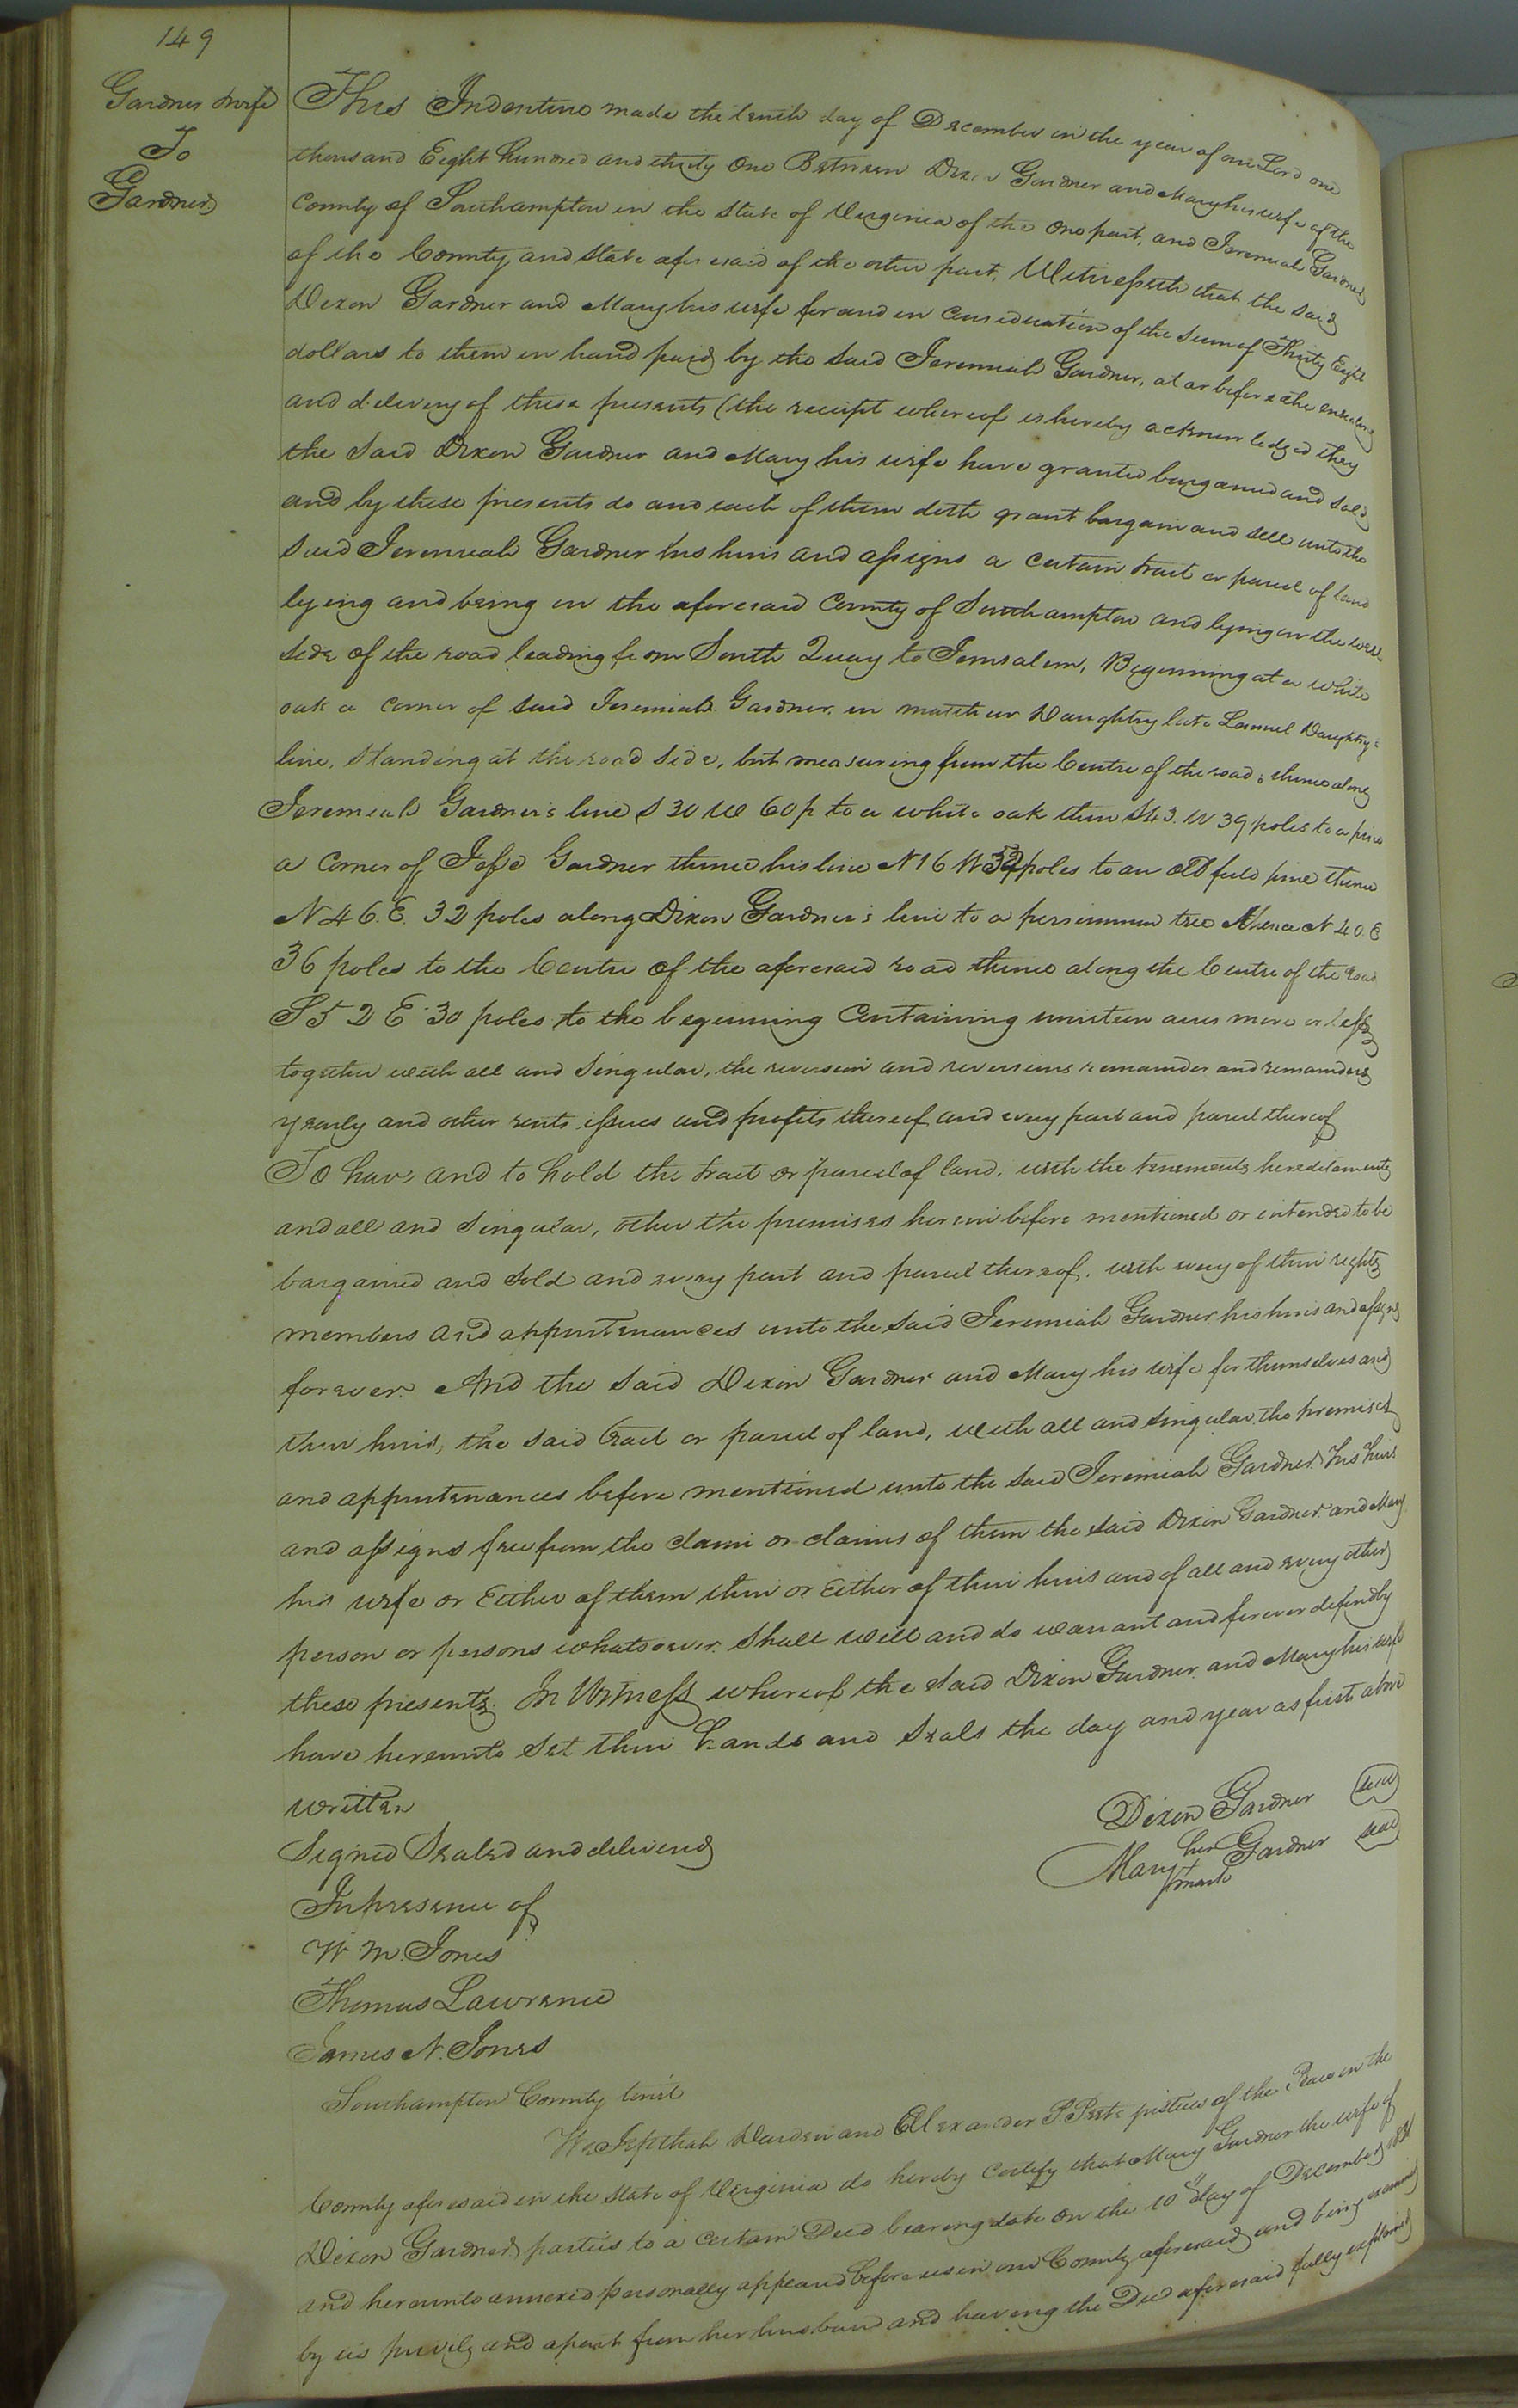 149
Gardner & wife
To
Gardner
This Indenture made the tenth day of December in the year of our Lord one
thousand Eight hundred and thirty One Between Dixon Gardner and Mary his wife of the
County of Southampton in the State of Virginia of the one part, and Jeremiah Gardner
of the County and State aforesaid of the other part, Witnesseth that the said
Dixon Gardner and Mary his wife for and in consideration of the sum of Thirty Eight
dollars to them in hand paid by the said Jeremiah Gardner, at or before the ensealing
and delivery of these presents (the receipt whereof is hereby acknowledged they
the said Dixon Gardner and Mary his wife have granted bargained and sold
and by these presents do and each of them doth grant bargain and sell unto the
said Jeremiah Gardner his heirs and assigns a certain tract or parcel of land
lying and being in the aforesaid County of Southampton and lying on the west
side of the road leading from South Quay to Jerusalem, Beginning at a white
oak a corner of said Jeremiah Gardner, in Daughtry late Lemuel Daughtry's
line, standing at the road side, but measuring from the Centre of the road; thence along
Jeremiah Gardner's line S 30 W 60 p to a white oak then S 43. W 39 poles to a pine
a corner of Jesse Gardner thence his line N 16 W poles to an old field pine thence
N 46. E. 32 poles along Dixon Gardner's line to a persimmon tree thence N 40 E
36 poles to the Centre of the aforesaid road thence along the Centre of the road
S 52 E 30 poles to the beginning Containing nineteen acres more or less
together with all and singular, the reversion and reversions remainder and remainders
yearly and other rents issues and profits thereof and every part and parcel thereof
To have and to hold the tract or parcel of land, with the tenements hereditaments
and all and singular, other the premises herein before mentioned or intended to be
bargained and sold and every part and parcel thereof, with every of their rights
members and appurtenances unto the said Jeremiah Gardner his heirs and assigns
forever. And the said Dixon Gardner and Mary his wife for themselves and
their heirs, the said tract or parcel of land, with all and singular the premises
and appurtenances before mentioned unto the said Jeremiah Gardner his heirs
and assigns free from the claim or claims of them the said Dixon Gardner and Mary
his wife or Either of them their or Either of their heirs and of all and every other
person or persons whatsoever. Shall will and do warrant and forever defend by
these presents. In Witness whereof the said Dixon Gardner and Mary his wife
have hereunto set their hands and seals the day and year as first above
written
Dixon Gardner seal
Signed Sealed and delivered
Mary her + mark Gardner seal
In presence of
W. M. Jones
Thomas Lawrence
James N. Jones
Southampton County towit
We Jepthah Darden and Alexander P Peete justices of the Peace in the
County aforesaid in the State of Virginia do hereby certify that Mary Gardner the wife of
Dixon Gardner parties to a certain Deed bearing date on the 10th day of December 1831
and hereunto annexed personally appeared before us in our County aforesaid and being examined
by us privily and apart from her husband and having the Deed aforesaid fully explained